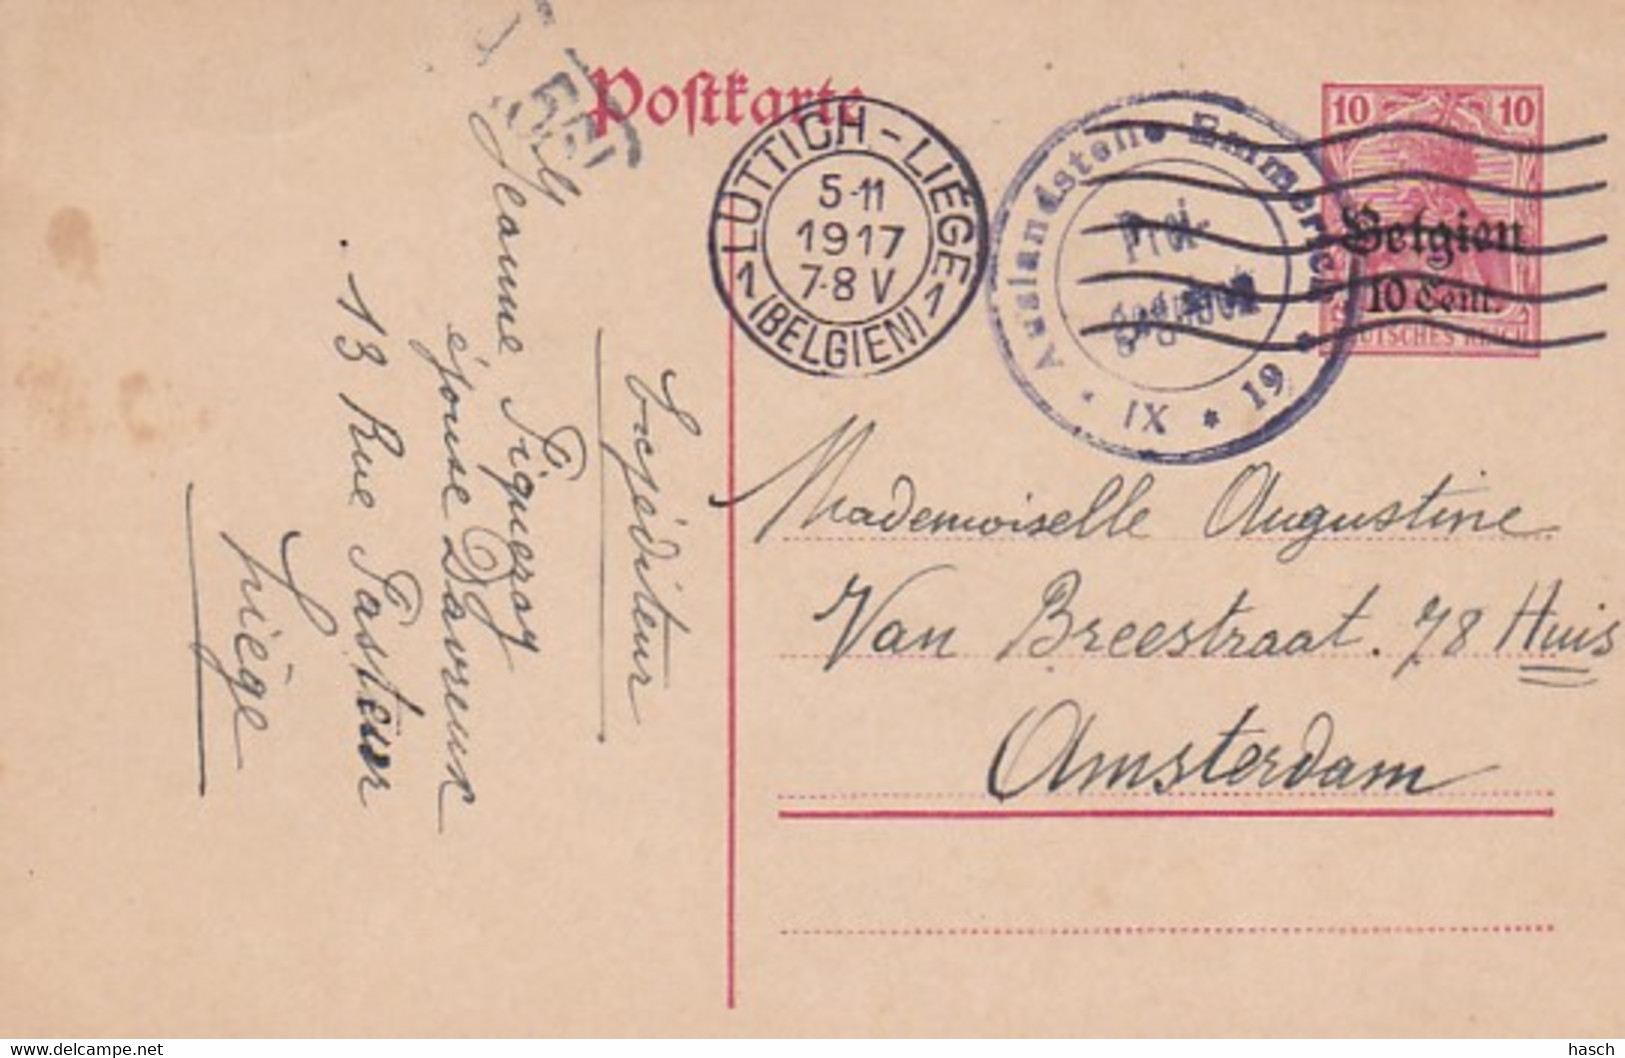 Postkarte
LÜTTICH - LIÉGE
5-11
1917
7-8 V
1 (BELGIEN) 1
Auslandstelle Emmerich
Frei-
gegeben
* IX * 19 *
10 10
Belgien
10 Cent.
DEUTSCHES REICH
Mademoiselle Augustine
Van Breestraat. 78 Huis
Amsterdam
Expéditeur
Jeanne Piquezoy
épouse Davreux
13 Rue Pasteur
Liège
www.delcampe.net
hasch